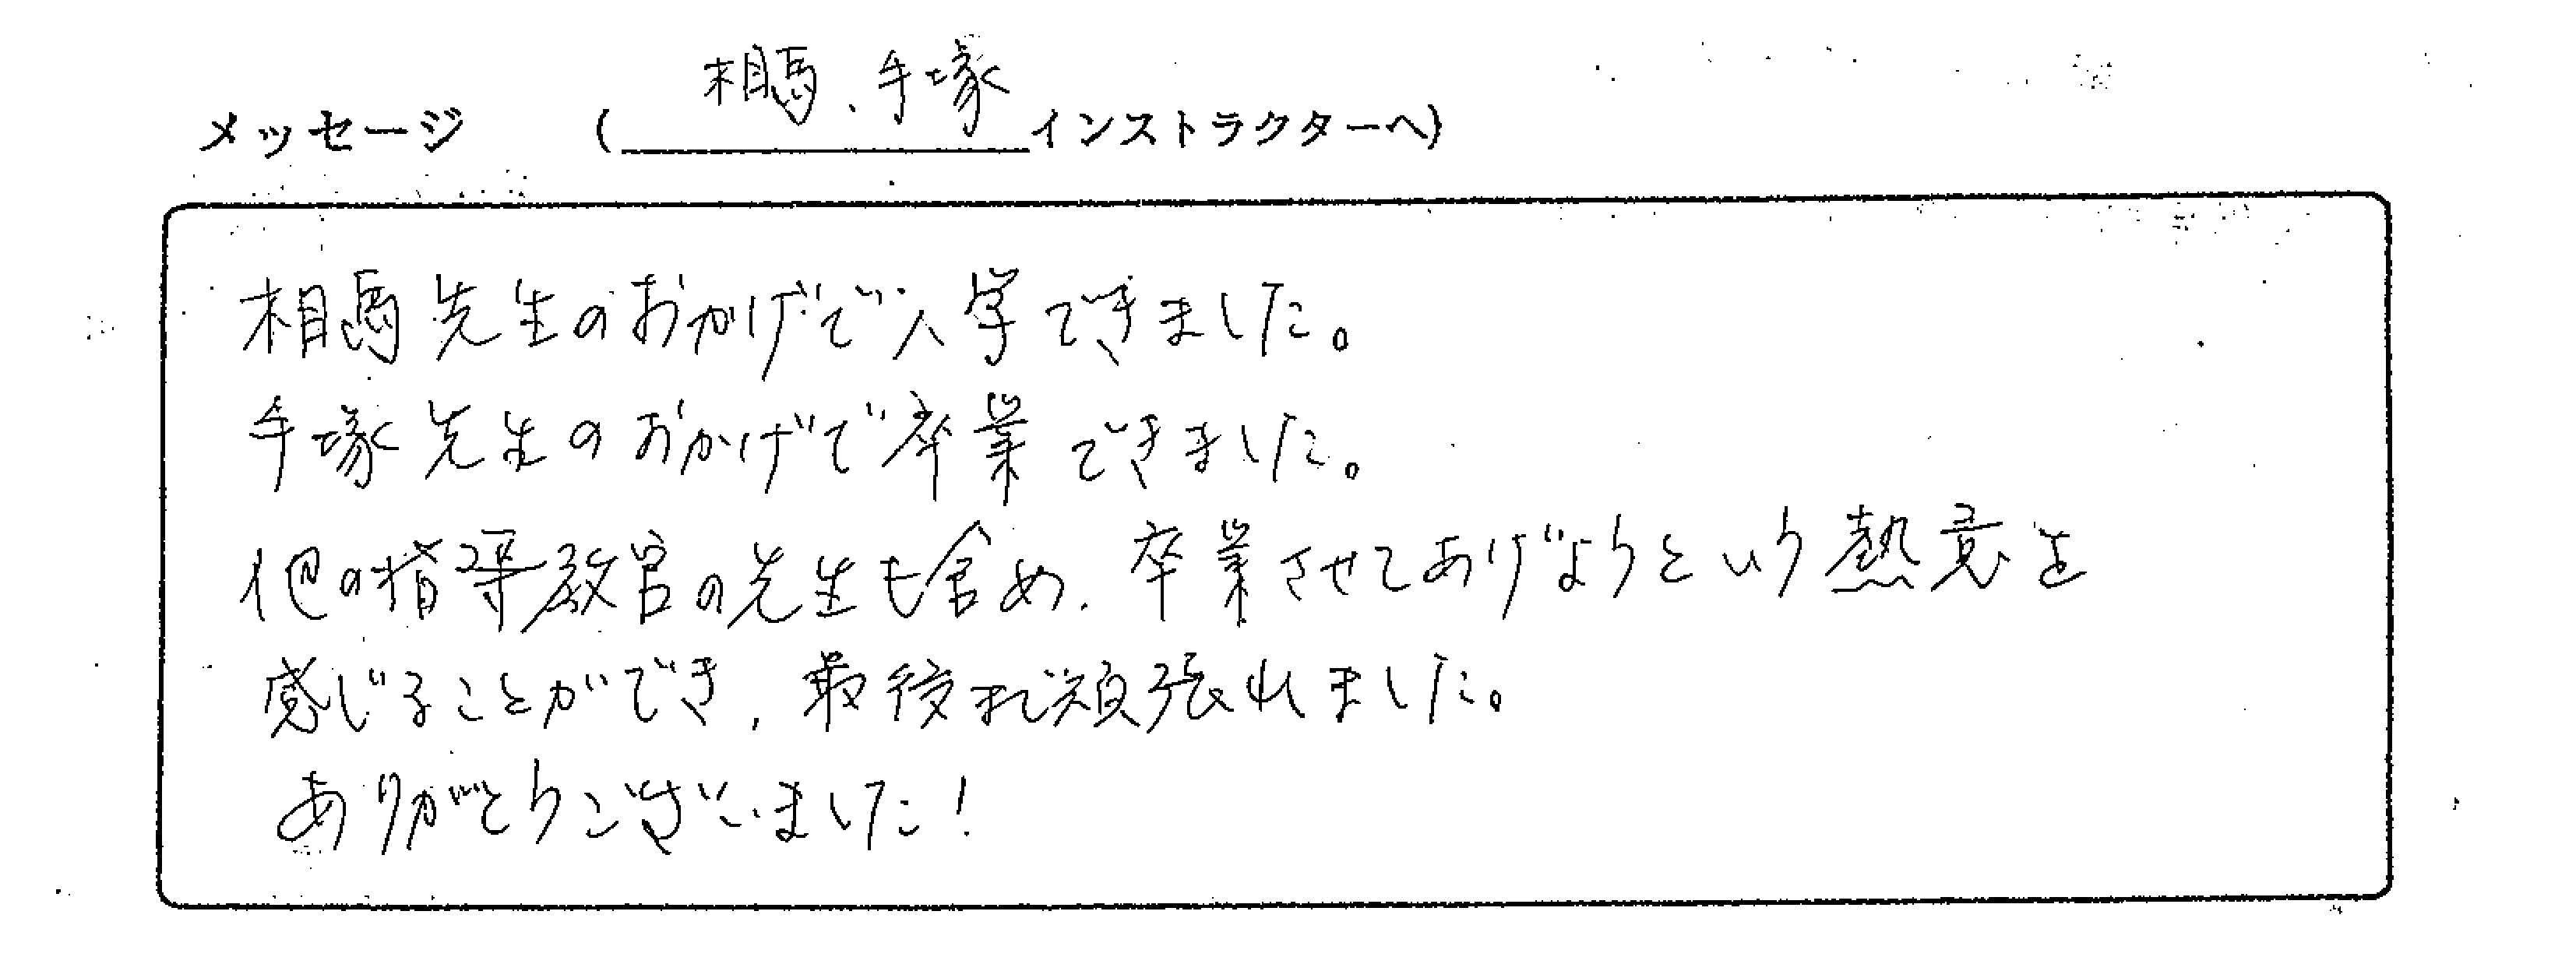 メッセージ (相馬、手塚インストラクターへ)
相馬先生のおかげで入学できました。
手塚先生のおかげで卒業できました。
他の指導教官の先生も含め、卒業させてあげようという熱意を
感じることができ、最後まで頑張れました。
ありがとうございました!